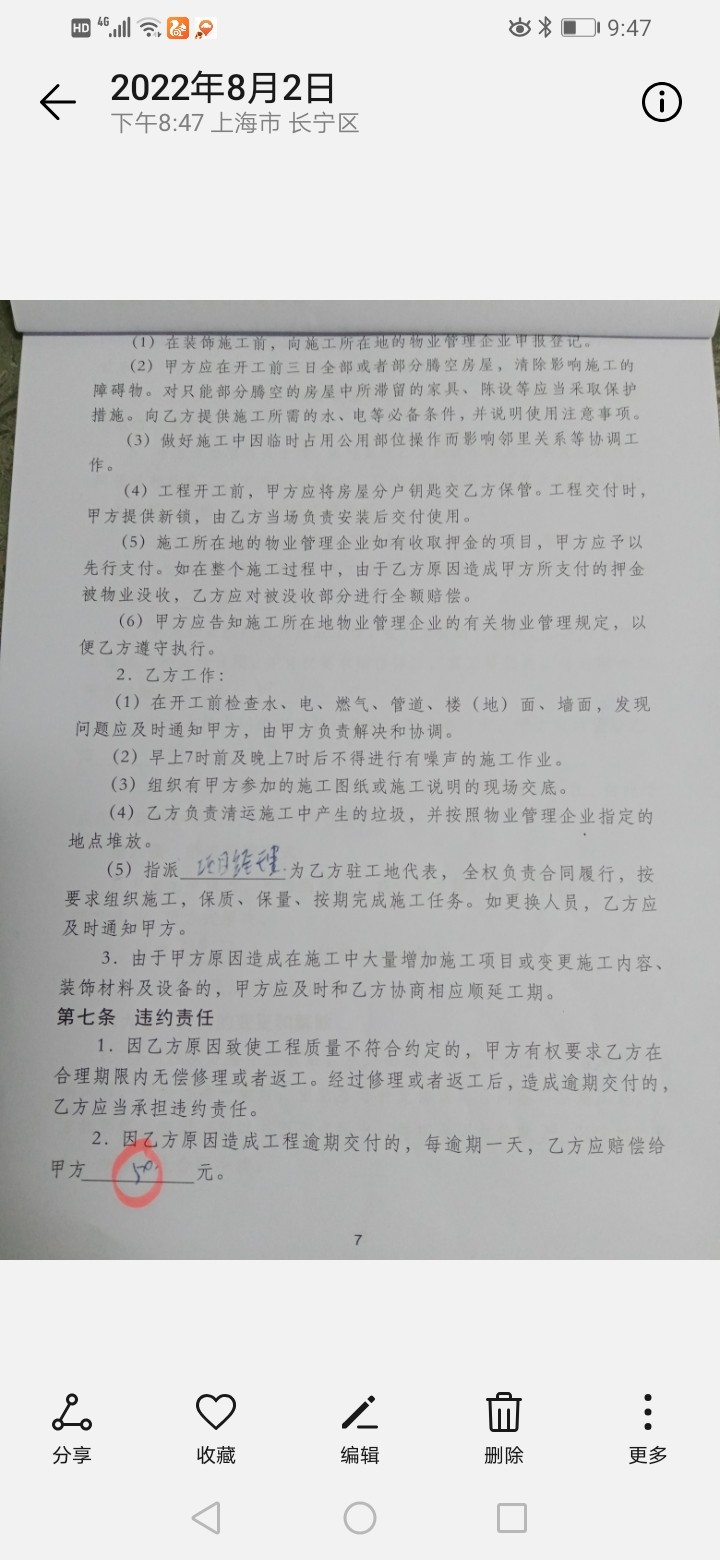 HD 4G 9:47
2022年8月2日
下午8:47 上海市 长宁区
(1) 在装饰施工前，向施工所在地的物业管理企业申报登记。
(2) 甲方应在开工前三日全部或者部分腾空房屋，清除影响施工的
障碍物。对只能部分腾空的房屋中所滞留的家具、陈设等应当采取保护
措施。向乙方提供施工所需的水、电等必备条件，并说明使用注意事项。
(3) 做好施工中因临时占用公用部位操作而影响邻里关系等协调工
作。
(4) 工程开工前，甲方应将房屋分户钥匙交乙方保管。工程交付时，
甲方提供新锁，由乙方当场负责安装后交付使用。
(5) 施工所在地的物业管理企业如有收取押金的项目，甲方应予以
先行支付。如在整个施工过程中，由于乙方原因造成甲方所支付的押金
被物业没收，乙方应对被没收部分进行全额赔偿。
(6) 甲方应告知施工所在地物业管理企业的有关物业管理规定，以
便乙方遵守执行。
2. 乙方工作：
(1) 在开工前检查水、电、燃气、管道、楼（地）面、墙面，发现
问题应及时通知甲方，由甲方负责解决和协调。
(2) 早上7时前及晚上7时后不得进行有噪声的施工作业。
(3) 组织有甲方参加的施工图纸或施工说明的现场交底。
(4) 乙方负责清运施工中产生的垃圾，并按照物业管理企业指定的
地点堆放。
(5) 指派 项目经理 为乙方驻工地代表，全权负责合同履行，按
要求组织施工，保质、保量、按期完成施工任务。如更换人员，乙方应
及时通知甲方。
3. 由于甲方原因造成在施工中大量增加施工项目或变更施工内容、
装饰材料及设备的，甲方应及时和乙方协商相应顺延工期。
第七条 违约责任
1. 因乙方原因致使工程质量不符合约定的，甲方有权要求乙方在
合理期限内无偿修理或者返工。经过修理或者返工后，造成逾期交付的，
乙方应当承担违约责任。
2. 因乙方原因造成工程逾期交付的，每逾期一天，乙方应赔偿给
甲方 50 元。
7
分享 收藏 编辑 删除 更多